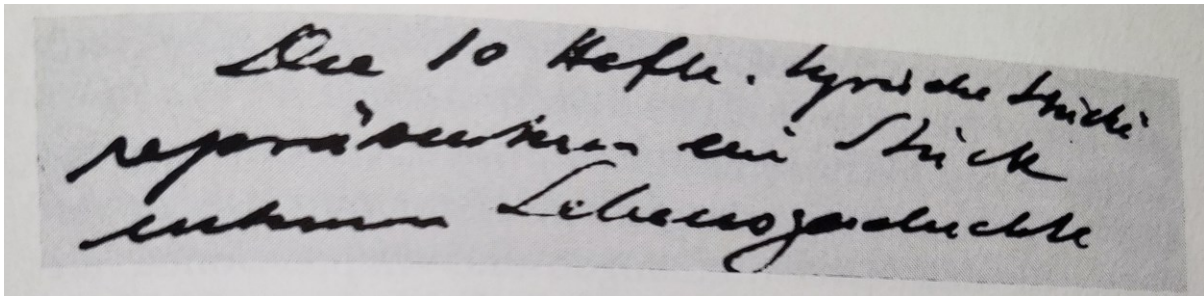 Die 10 Hefte. Lyrische Stücke
repräsentieren ein Stück
intimen Lebensgeschichte